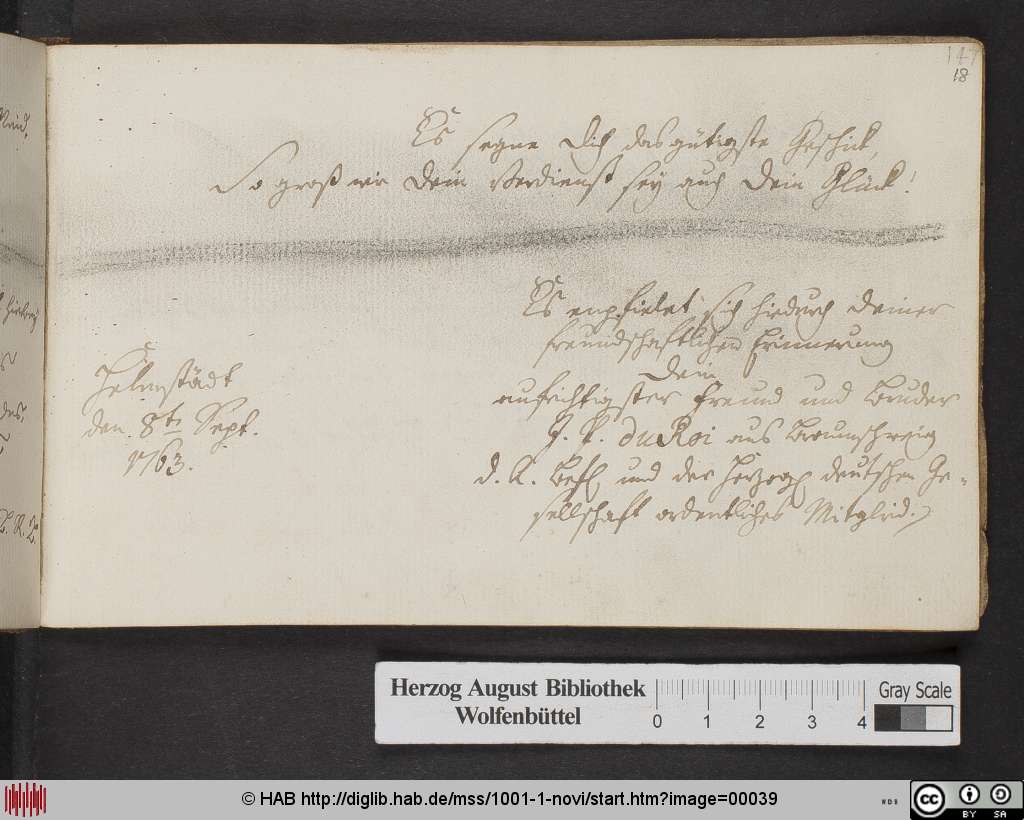 147
18
Es segne Dich das gütigste Geschick,
So groß wie Dein Verdienst sey auch Dein Glück!
Es empfielet sich hiedurch Deiner
freundschaftlichen Erinnerung
Dein
aufrichtigster Freund und Bruder
J. P. du Roi aus Braunschweig
d. R. Befl. und der Herzogl. deutschen Ge-
sellschaft ordentliches Mitglied.
Helmstädt
den 8t Sept.
1763.
Herzog August Bibliothek
Wolfenbüttel
0 1 2 3 4
Gray Scale
© HAB http://diglib.hab.de/mss/1001-1-novi/start.htm?image=00039
cc BY SA